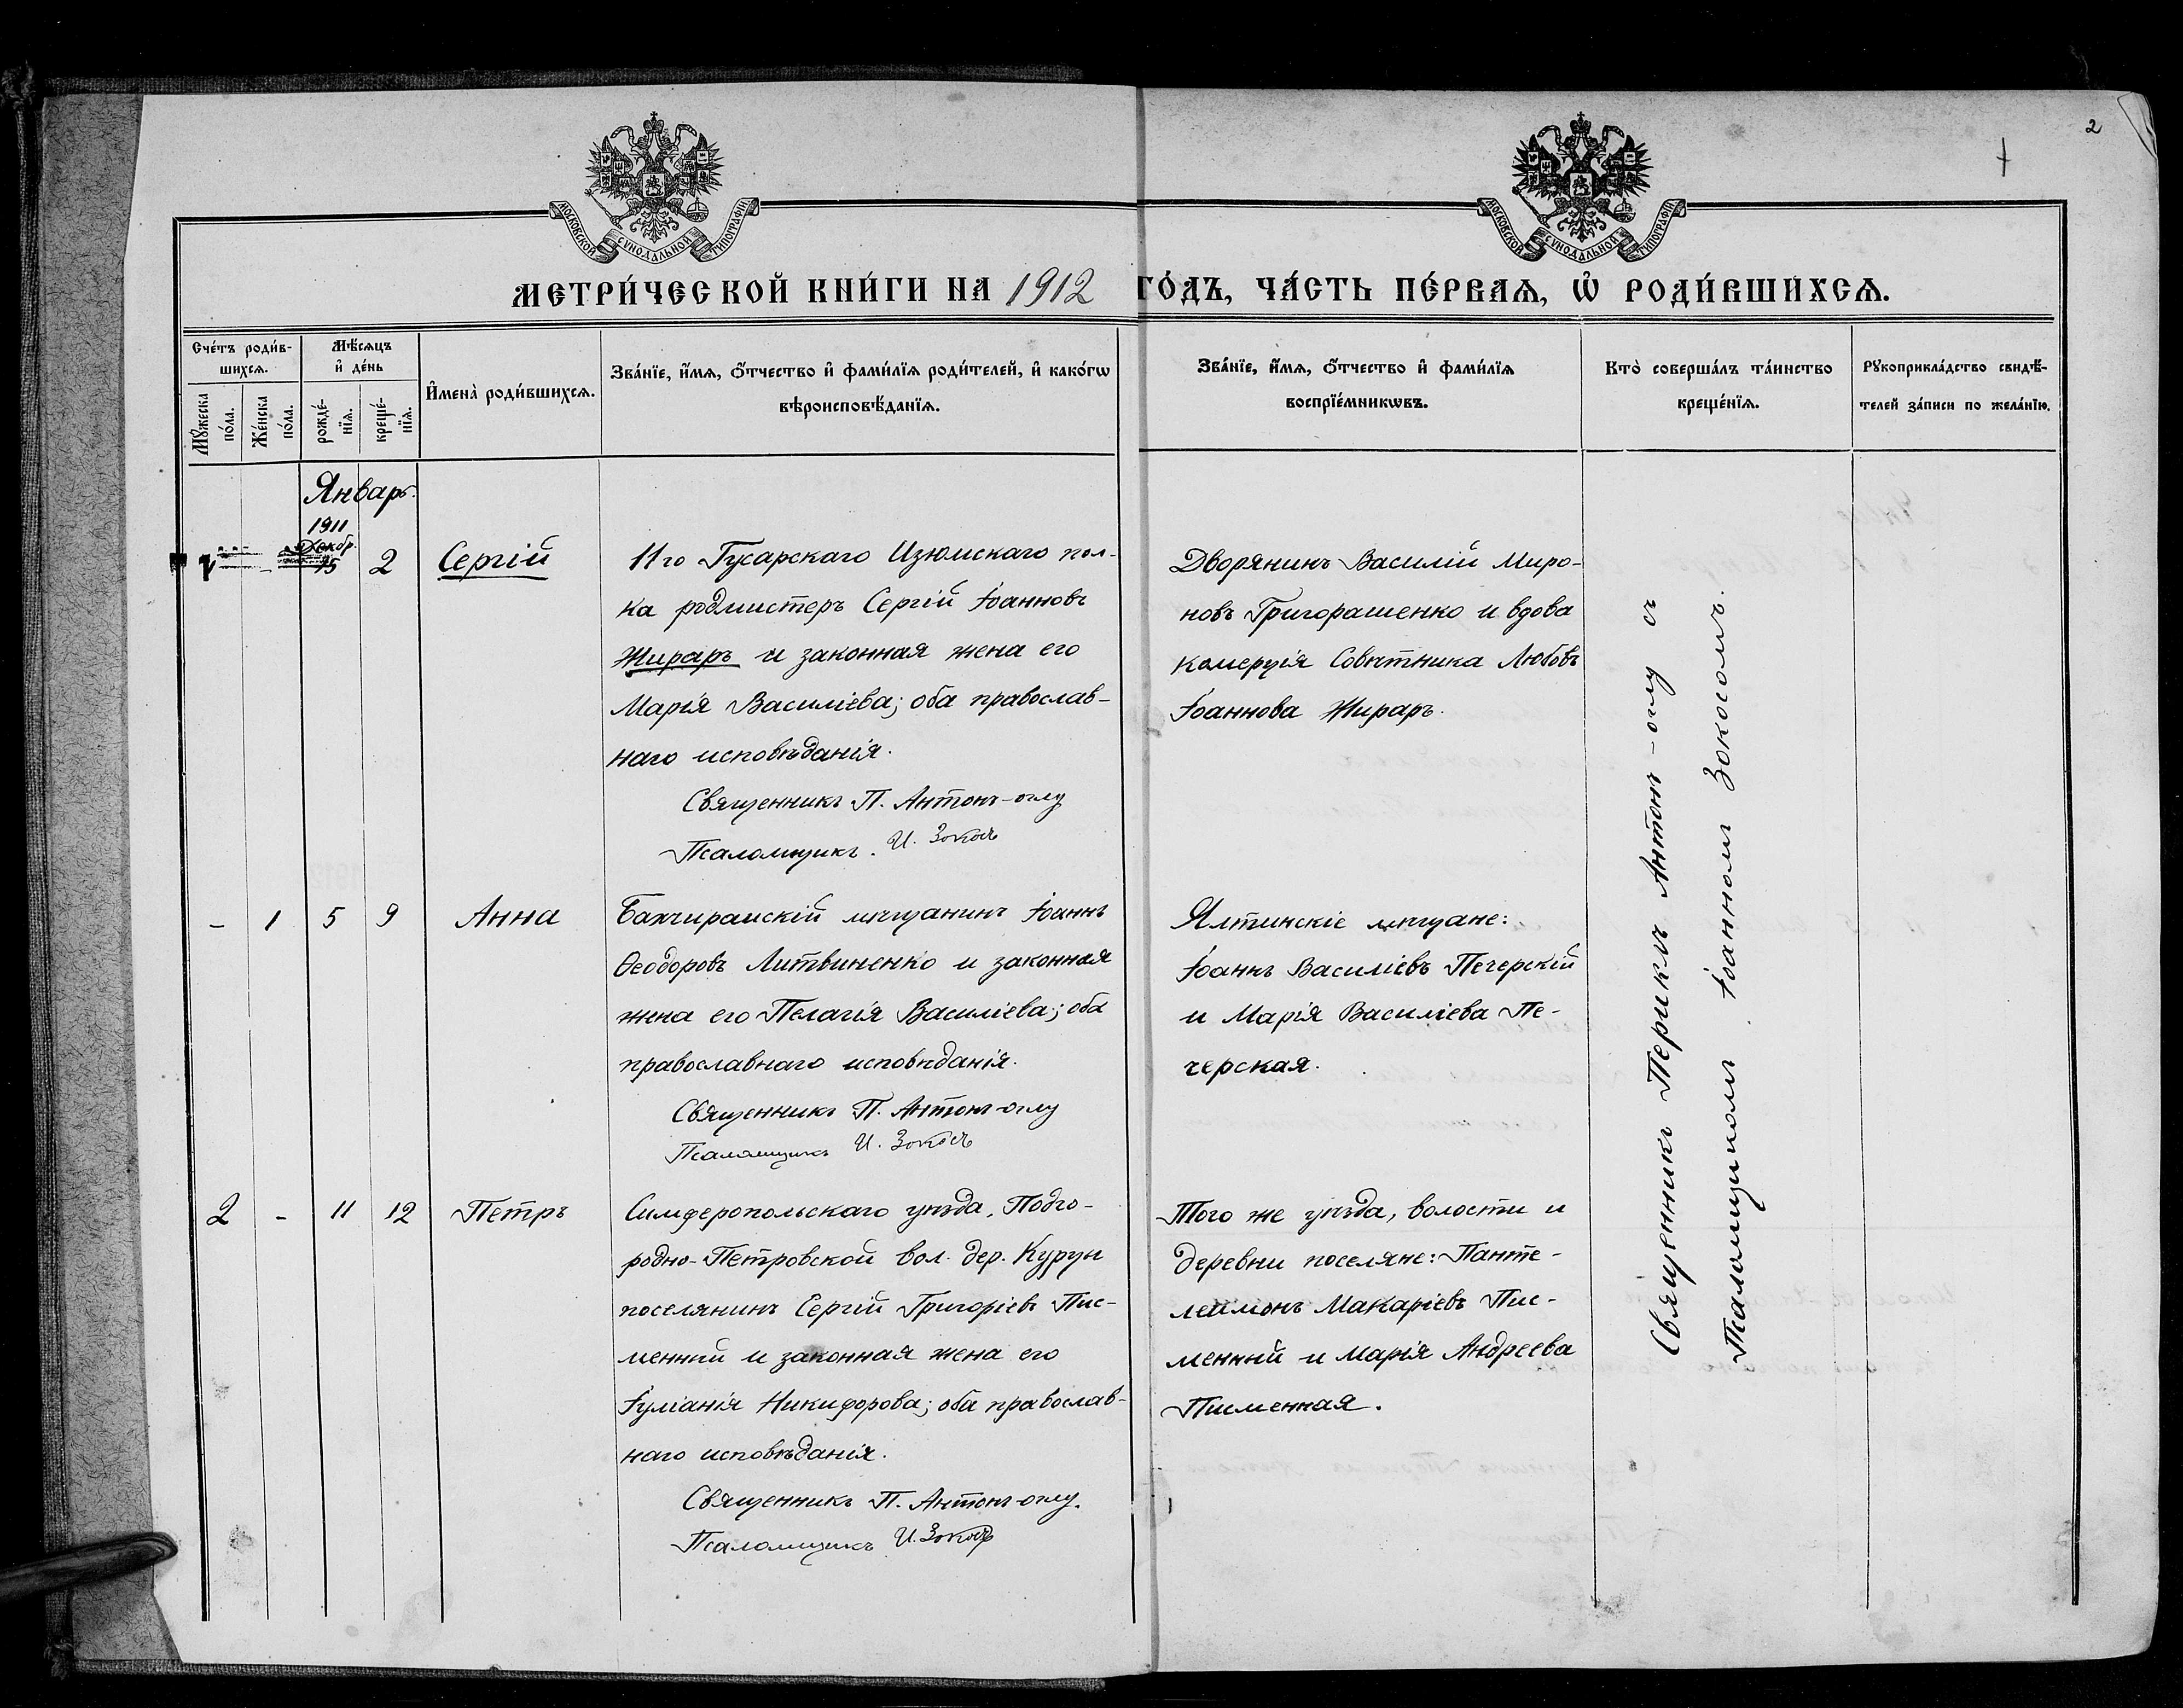 2
МОСКОВСКОЙ СѴНОДАЛЬНОЙ ТИПОГРАФІИ
МОСКОВСКОЙ СѴНОДАЛЬНОЙ ТИПОГРАФІИ
МЕТРИ́ЧЕСКОЙ КНИ́ГИ НА 1912 ГО́ДЪ, ЧА́СТЬ ПЕ́РВАѦ, Ѡ҆ РОДИ́ВШИХСѦ.
Сче́тъ роди́в-
шихсѧ.
Мꙋ́жеска
по́ла.
Же́нска
по́ла.
Мѣ́сѧцъ
и҆ де́нь
рожде́-
нїѧ.
креще́-
нїѧ.
И҆мена̀ роди́вшихсѧ.
Зва́нїе, и҆́мѧ, ѻ҆́тчество и҆ фами́лїѧ роди́телей, и҆ како́гѡ
вѣроисповѣ́данїѧ.
Зва́нїе, и҆́мѧ, ѻ҆́тчество и҆ фами́лїѧ
воспрїе́мникѡвъ.
Кто̀ соверша́лъ та́инство
креще́нїѧ.
Рꙋкоприкла́дство свидѣ́-
телей за́писи по жела́нїю.
Январь.
1911
Декбр.
15 2 Сергій
11го Гусарскаго Изюмскаго пол-
ка родмистеръ Сергій Іоанновъ
Жираръ и законная жена его
Марія Василіева; оба православ-
наго исповѣданія.
Священникъ П. Антонъ-оглу
Псаломщикъ. И. Зокосъ
Дворянинъ Василій Миро-
новъ Григорашенко и вдова
комерція Совѣтника Любовь
Іоаннова Жираръ.
- 1 5 9 Анна
Бахчирайскій мѣщанинъ Іоаннъ
Ѳеодоровъ Литвиненко и законная
жена его Пелагія Василіева; оба
православнаго исповѣданія.
Священникъ П. Антонъ-оглу
Псаломщикъ И. Зокосъ
Ялтинскіе мѣщане:
Іоаннъ Василіевъ Печерскій
и Марія Василіева Пе-
черская.
2 - 11 12 Петръ
Симферопольскаго уѣзда, Подго-
родно-Петровской вол. дер. Курцы
поселянинъ Сергій Григоріевъ Пис-
менный и законная жена его
Іуліанія Никифорова; оба православ-
наго исповѣданія.
Священникъ П. Антонъ-оглу.
Псаломщикъ И. Зокосъ
Того же уѣзда, волости и
деревни поселяне: Панте-
леимонъ Макаріевъ Пис-
менный и Марія Андреева
Писменная.
Священникъ Периклъ Антонъ-оглу съ
Псаломщикомъ Іоанномъ Зокосомъ.